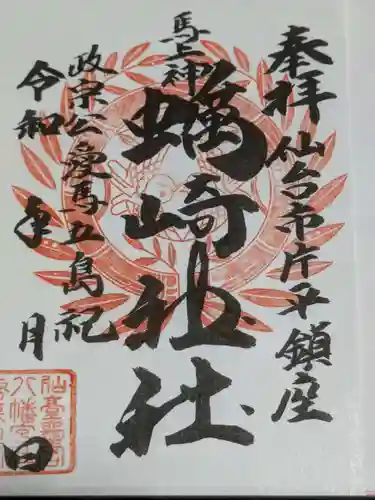 奉拝 仙台市片平鎮座
馬上神
蠣崎神社
政宗公愛馬五島祀
令和 年 月 日